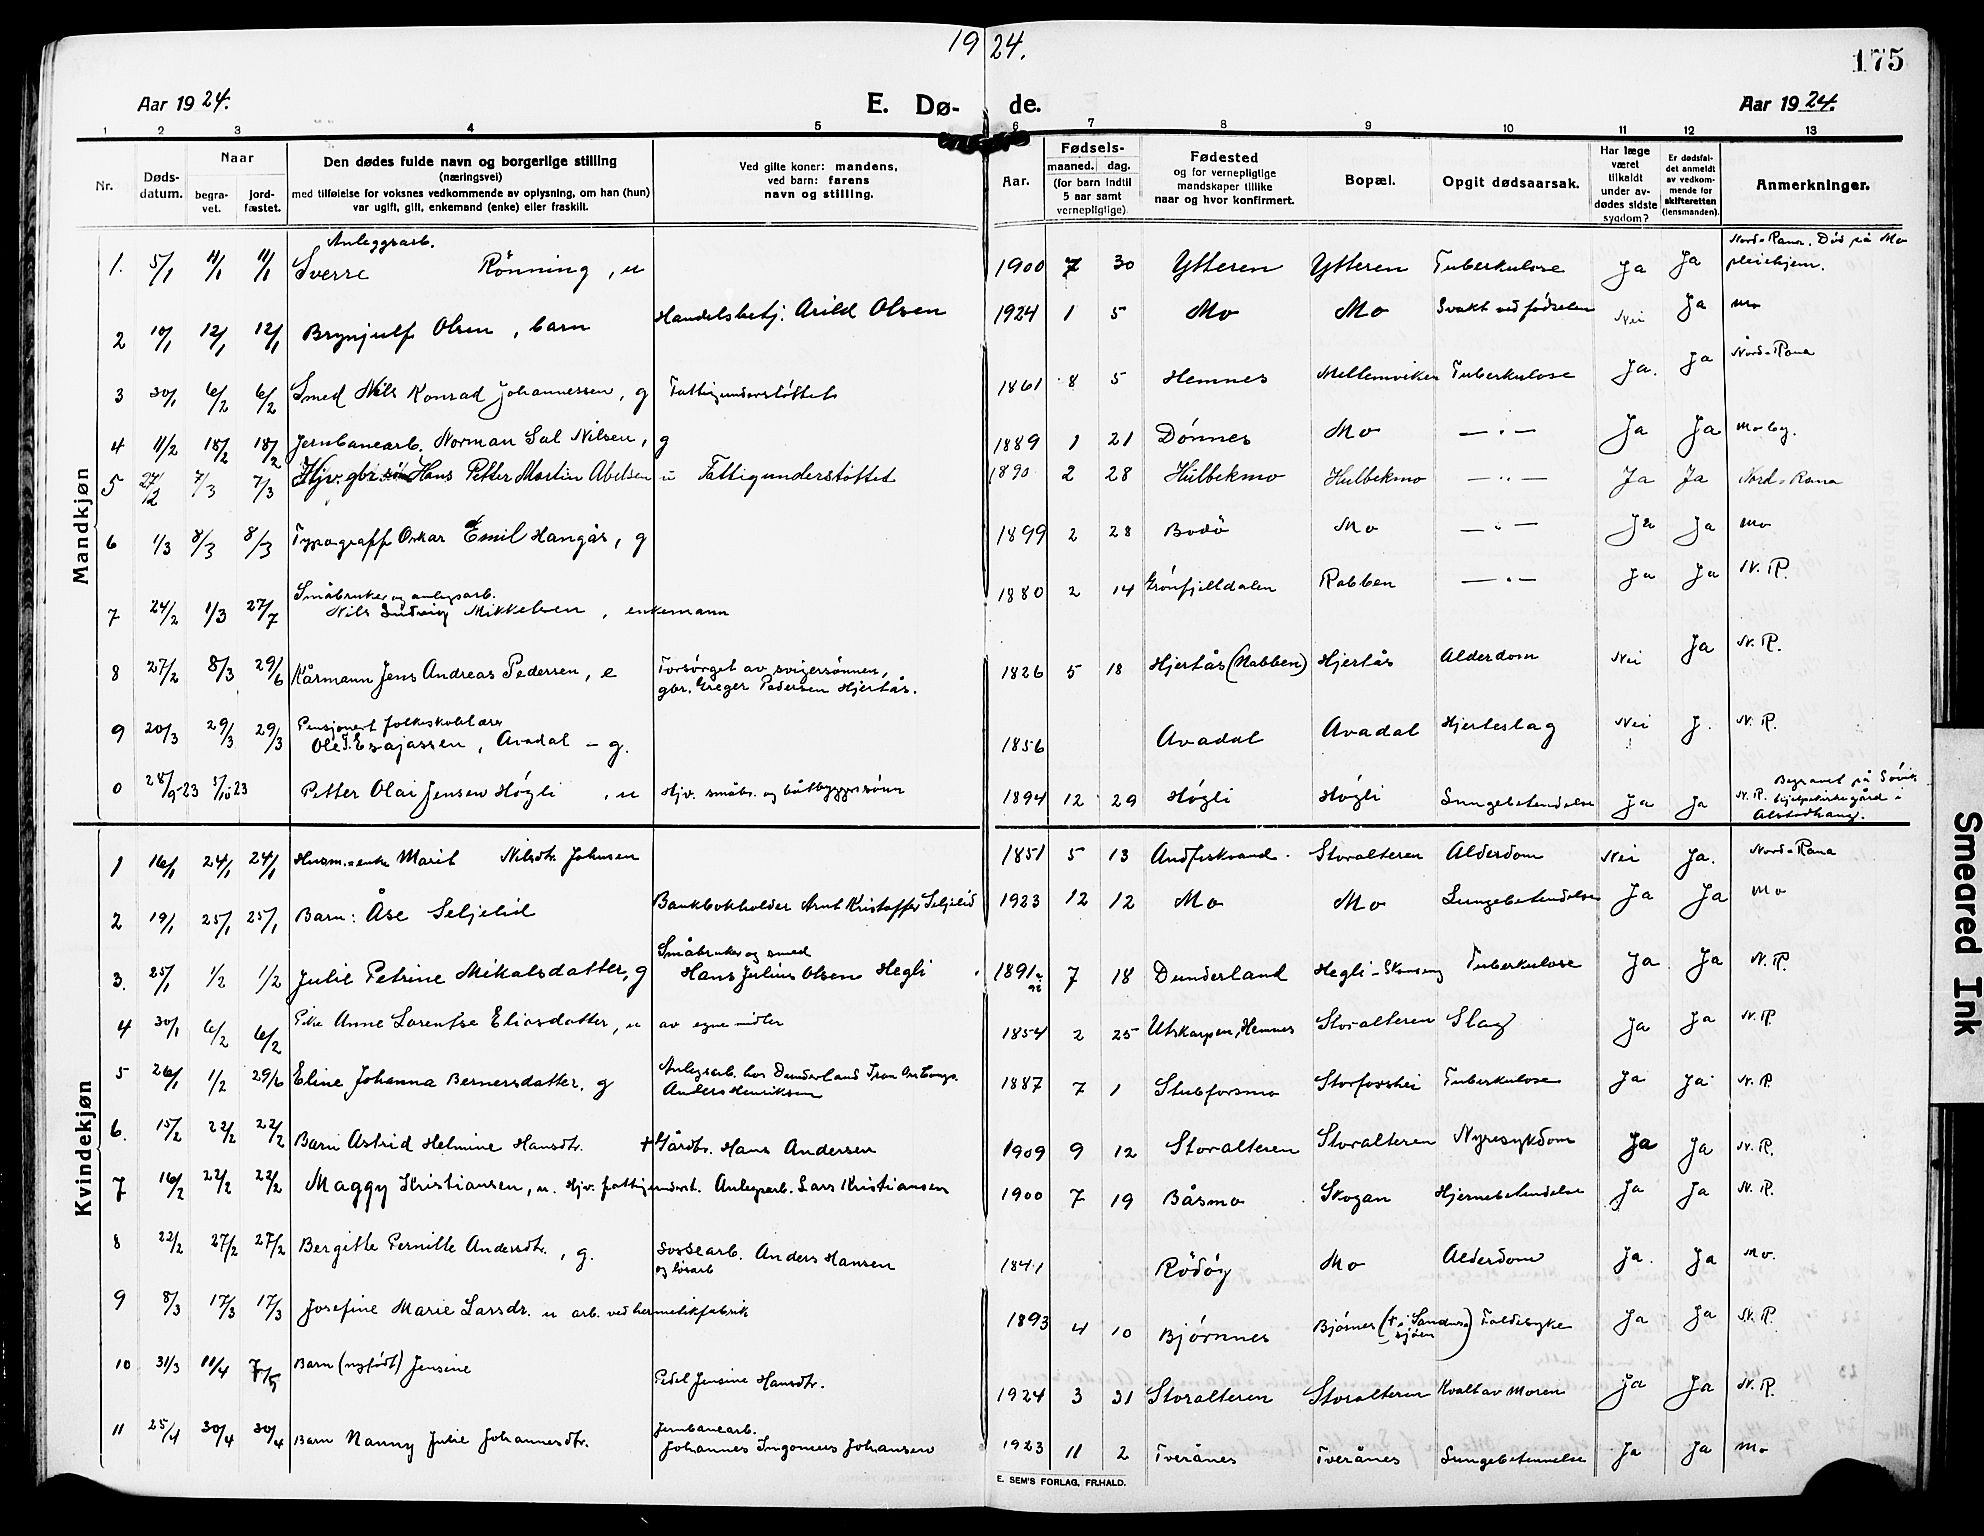 19 24.
175
Aar 1924. E. Dø- de. Aar 1924.
1 2 3 4 5 6 7 8 9 10 11 12 13
Nr. Døds-datum. Naar begra-vet. jord-fæstet. Den dødes fulde navn og borgerlige stilling (næringsvei) med tilføielse for voksnes vedkommende av oplysning, om han (hun) var ugift, gift, enkemand (enke) eller fraskilt. Ved gifte koner: mandens, ved barn: farens navn og stilling. Aar. Fødsels- maaned. dag. (for barn indtil 5 aar samt vernepligtige). Fødested og for vernepligtige mandskaper tillike naar og hvor konfirmert. Bopæl. Opgit dødsaarsak. Har læge været tilkaldt under av-dødes sidste sygdom? Er dødsfal-det anmeldt av vedkom-mende for skifteretten (lensmanden). Anmerkninger.
Mandkjøn
1. 5/1 11/1 11/1 Anleggsarb. Sverre Rönning, u 1900 7 30 Ytteren Ytteren Tuberkulose Ja Ja Nord-Rana. Død på Mo pleiehjem.
2 10/1 12/1 12/1 Brynjulf Olsen, barn Handelsbetj. Arild Olsen 1924 1 5 Mo Mo Svakt ved fødselen Nei Ja Mo
3 30/1 6/2 6/2 Smed Nils Konrad Johannessen, g Fattigunderstøttet 1861 8 5 Hemnes Mellemviken Tuberkulose Ja. Ja Nord-Rana
4 11/2 18/2 18/2 Jernbanearb. Norman Sal Nilsen, g 1889 1 21 Dónnes Mo — " — Ja Ja Mo by.
5 27/2 7/3 7/3 Hjv. gbr. Hans Petter Martin Abelsen u Fattigunderstøttet 1890 2 28 Hulbekmo Hulbekmo — " — Ja Ja Nord-Rana
6 1/3 8/3 8/3 Typograff Oskar Emil Hangås, g 1899 2 28 Bodö Mo — " — Ja Ja Mo
7 24/2 1/3 27/7 Småbruker og anlegsarb. Nils Ludvig Mikkelsen, enkemann 1880 2 14 Grönfjelldalen Rabben — " — Ja Ja N. R.
8 27/2 8/3 29/6 Kårmann Jens Andreas Pedersen, e Forsórget av svigersónnen, gbr. Greger Pedersen Hjertås. 1826 5 18 Hjertås (Nabben) Hjertås Alderdom Nei Ja N. R.
9 20/3 29/3 29/3 Pensjonert folkeskolelærer Ole J. Esajassen, Avadal - g. 1856 Avadal Avadal Hjerteslag Nei J. N. R.
0 28/9-23 5/10 23 Petter Olai Jensen Høgli, u Hjv. småbr. og båtbyggersónn 1894 12 29 Høgli Høgli Lungebetendelse Ja Ja Begravet på Sövik N. R. hjelpekirkegård i Alstadhaug.
Kvindekjøn
1 16/1 24/1 24/1 Husm.-enke Marit Nilsdtr. Johnsen 1851 5 13 Andfiskvand. Storalteren Alderdom Nei Ja. Nord-Rana
2 19/1 25/1 25/1 Barn: Åse Seljelid Bankbokholder Arnt Kristoffer Seljelid 1923 12 12 Mo Mo Lungebetendelse Ja Ja Mo
3. 25/1 1/2 1/2 Julie Petrine Mikalsdatter, g Småbruker og smed Hans Julius Olsen Hegli 1891 7 18 Dunderland Hegli - Skonseng Tuberkulose Ja Ja N. R.
4 30/1 6/2 6/2 Pike Anne Lorentse Eliasdatter, u av egne midler 1854 2 25 Utskarpen, Hemnes Storalteren Slag Ja Ja N. R.
5 26/1 1/2 29/6 Eline Johanna Bernersdatter, g Anlegsarb. hos Dunderland Iron Ore Comp. Anders Henriksen 1887 7 1 Stubforsmo Storforshei Tuberkulose Ja Ja N. R.
6. 15/2 22/2 22/2 Barn Astrid Helmine Hansdtr. + Gårdbr. Hans Andersen 1909 9 12 Storalteren Storalteren Nyresykdom Ja Ja N. R.
7 16/2 22/2 22/2 Maggy Kristiansen, u. Hjv. fattigunderst. Anlegsarb. Lars Kristiansen 1900 7 19 Båsmo Skogan Hjernebetendelse Ja Ja N. R.
8 22/2 27/2 27/2 Bergitte Pernille Andersdtr., g. og lösarb Anders Hansen 1841 Rödöy Mo Alderdom Ja. Ja Mo.
9 8/3 17/3 17/3 Josefine Marie Larsdr. u arb. ved hermetikfabrik 1893 4 10 Bjórnnes Bjórnes (+ i Sandnessjöen) Faldesyke Ja Ja N. R.
10 31/3 11/4 7/5 Barn (nyfödt) Jensine Jensine Hansdtr. 1924 3 31 Storalteren Storalteren Kvalt av moren Ja Ja N. R.
11 25/4 30/4 30/4 Barn Nanny Julie Johannesdtr. Jernbanearb. Johannes Ingomus Johansen 1923 11 2 Tverånes Tverånes Lungebetennelse Ja Ja Mo
E. SEM'S FORLAG, FR.HALD.
Smeared Ink